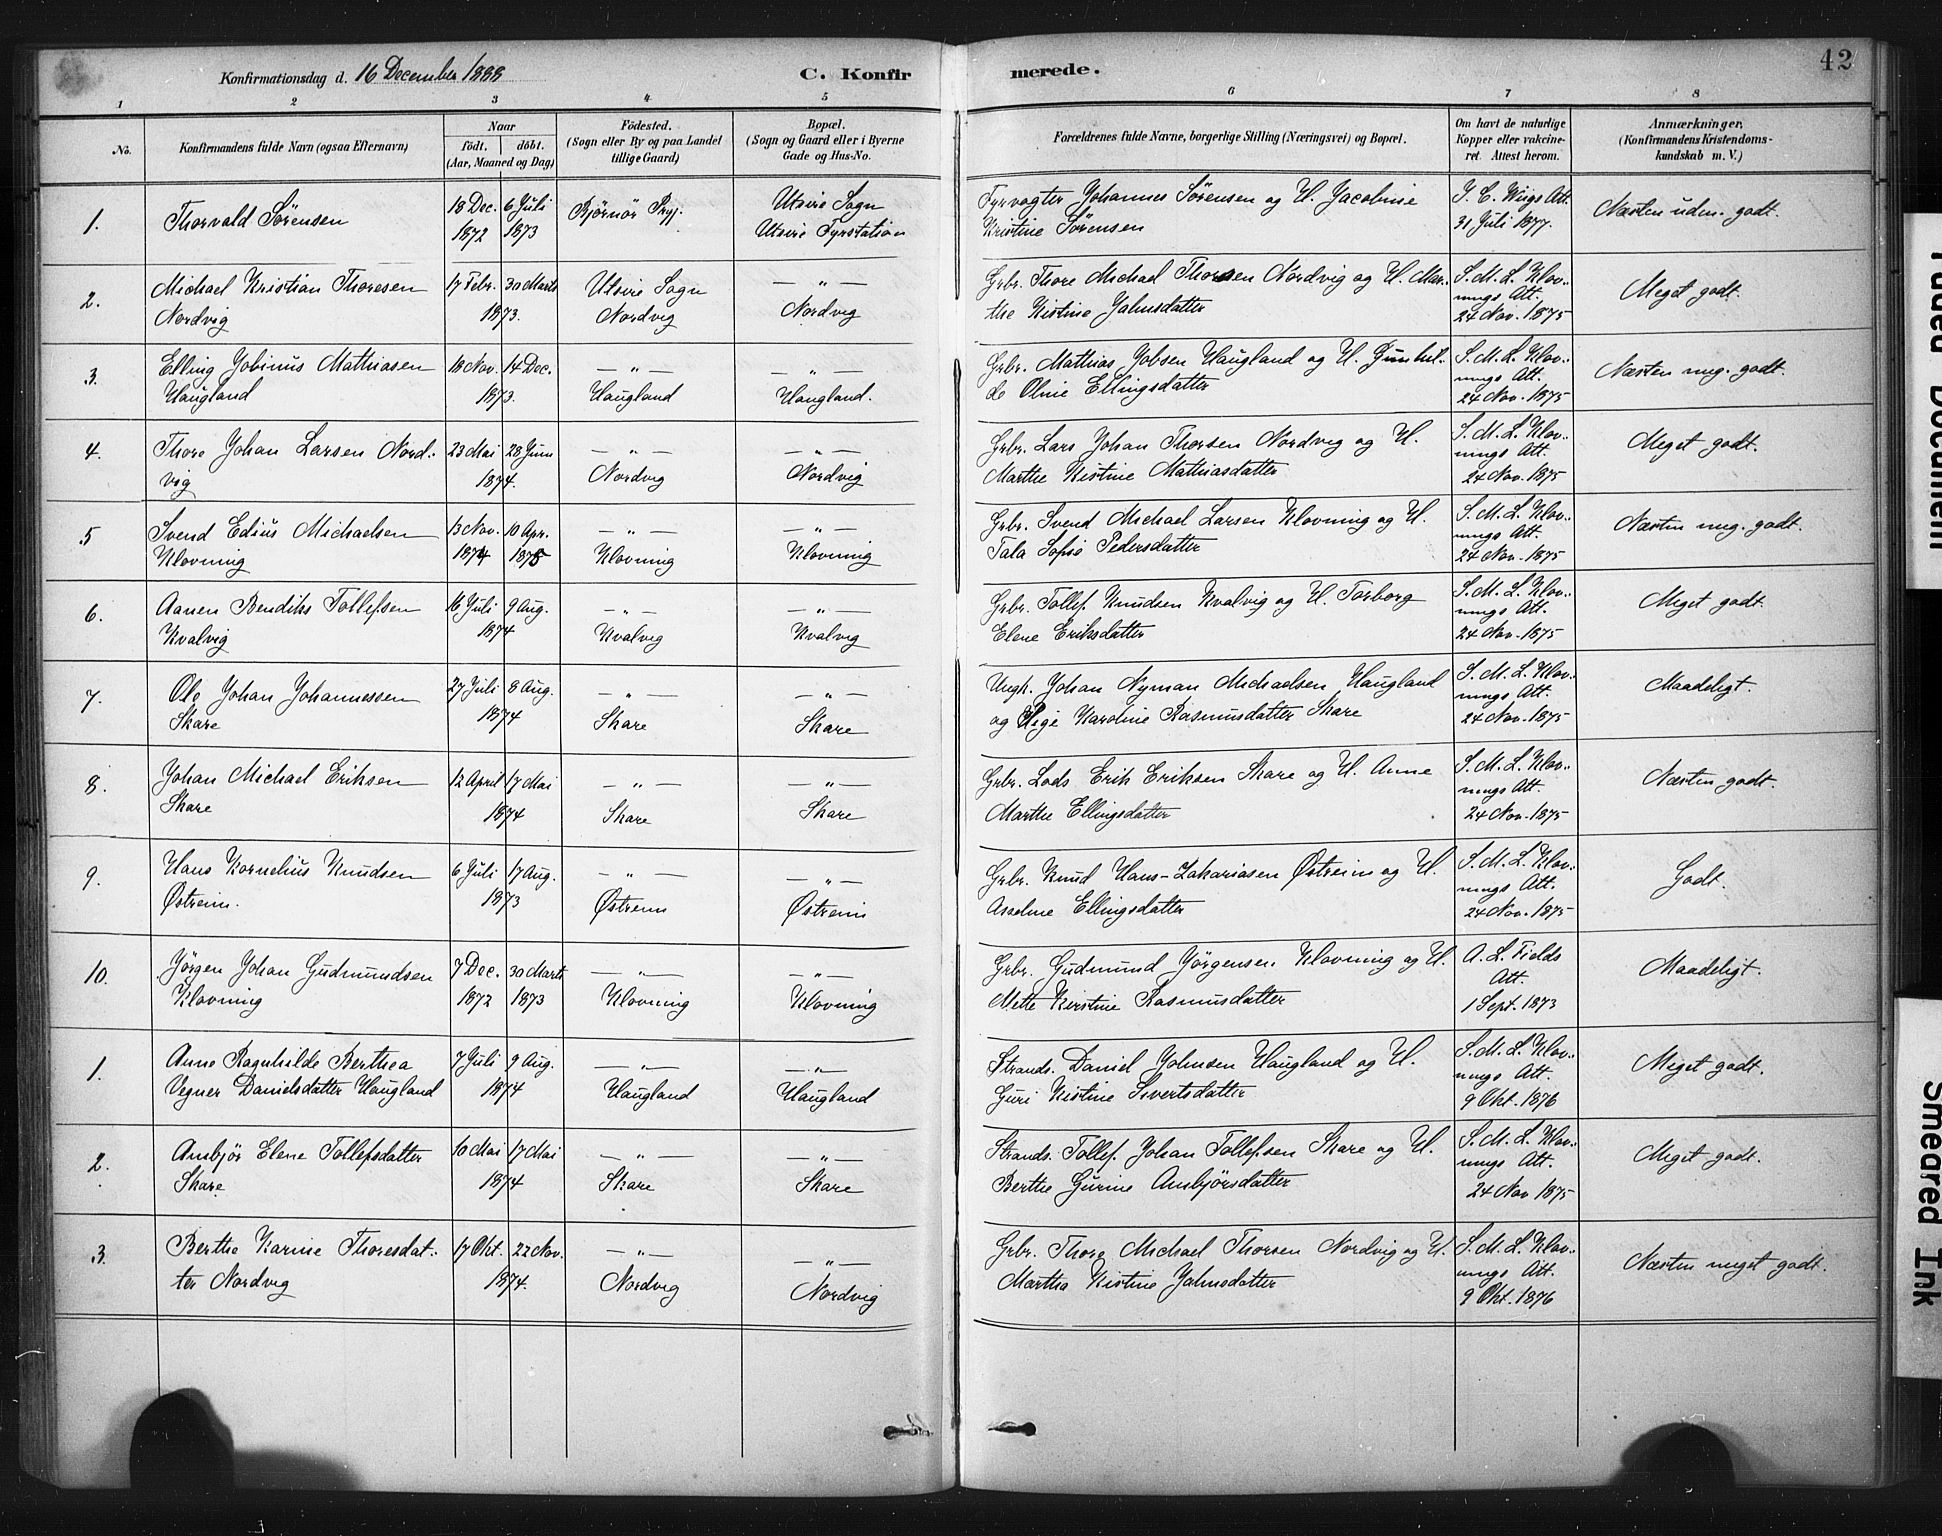 Konfirmationsdag d. 16 December 1888
C. Konfirmerede.
42
1 2 3 4 5 6 7 8
No.
Konfirmandens fulde Navn (ogsaa Efternavn)
Naar
födt. döbt.
(Aar, Maaned og Dag)
Födested.
(Sogn eller By og paa Landet
tillige Gaard)
Bopæl.
(Sogn og Gaard eller i Byerne
Gade og Hus-No.
Forældrenes fulde Navne, borgerlige Stilling (Næringsvei) og Bopæl.
Om havt de naturlige
Kopper eller vakcine-
ret. Attest herom.
Anmærkninger,
(Konfirmandens Kristendoms-
kundskab m. V.)
1. Thorvald Sörensen
18 Dec. 6 Juli
1872 1873
Bjørnør Prgj.
Utsire Sogn
Utsire Fyrstation
Fyrvogter Johannes Sörensen og H. Jacobine
Kristine Sörensen
31 Juli 1877.
Næsten udm. godt.
2. Michael Kristian Thoresen
Nordvig
17 Febr. 30 Marts
1873.
Utsire Sogn
Nordvig
— " —
Nordvig
Grbr. Thore Michael Thorsen Nordvig og H. Mar-
the Kistine Jahnsdatter
S. M. L. Klov-
nings Att.
24 Nov. 1875
Meget godt.
3. Elling Jobinus Mathiasen
Haugland
18 Nov. 14 Dec.
1873.
— " —
Haugland
— " —
Haugland.
Grbr. Mathias Jobsen Haugland og H. Gunhil-
de Oline Ellingsdatter
S. M. L. Klov-
nings Att.
24 Nov. 1875
Næsten meg. godt.
4. Thore Johan Larsen Nord-
vig
23 Mai 28 Juni
1874.
— " —
Nordvig
— " —
Nordvig
Grbr. Lars Johan Thorsen Nordvig og H.
Marthe Kistine Mathiasdatter
S. M. L. Klov-
nings Att.
24 Nov. 1875
Meget godt.
5 Svend Edius Michaelsen
Klovning
13 Nov. 10 Apr.
1874 1875
— " —
Klovning
— " —
Klovning
Grbr. Svend Michael Larsen Klovning og H.
Tala Sofie Pedersdatter
S. M. L. Klov-
nings Att.
24 Nov. 1875
Næsten meg. godt.
6. Aanen Bendiks Tollefsen
Kvalvig
16 Juli 9 Aug.
1874
— " —
Kvalvig
— " —
Kvalvig
Grbr. Tollef Knudsen Kvalvig og H. Torborg
Elene Eriksdatter
S. M. L. Klov-
nings Att.
24 Nov. 1875
Meget godt.
7. Ole Johan Johannessen
Skare
27 Juli 8 Aug.
1874
— " —
Skare
— " —
Skare
Ungk. Johan Nyman Michaelsen Haugland
og Pige Karoline Rasmusdatter Skare
S. M. L. Klov-
nings Att.
24 Nov. 1875
Maadeligt.
8. Johan Michael Eriksen
Skare
12 April 17 Mai
1874
— " —
Skare
— " —
Skare
Grbr. Lods Erik Eriksen Skare og H. Anne
Marthe Ellingsdatter
S. M. L. Klov-
nings Att.
24 Nov. 1875
Næsten godt.
9. Hans Kornelius Knudsen
Østreim.
6 Juli 17 Aug.
1873
— " —
Østreim
— " —
Østreim
Grbr. Knud Hans-Zakariasen Østreim og H.
Aseline Ellingsdatter
S. M. L. Klov-
nings Att.
24 Nov. 1875
Godt.
10. Jörgen Johan Gudmundsen
Klovning
7 Dec. 30 Marts
1872 1873
— " —
Klovning
— " —
Klovning
Grbr. Gudmund Jörgensen Klovning og H.
Mette Kirstine Rasmusdatter
A. L. Fields
Att.
1 Sept. 1873
Maadeligt.
1. Anne Ragnhilde Berthea
Vegner Danielsdatter Haugland
7 Juli 9 Aug.
1874
— " —
Haugland
— " —
Haugland
Strands. Daniel Johnsen Haugland og H.
Guri Kistine Sivertsdatter
S. M. L. Klov-
nings Att.
9 Okt. 1876
Meget godt.
2. Ansbjör Elene Tollefsdatter
Skare
10 Mai 17 Mai
1874
— " —
Skare
— " —
Skare
Strands. Tollef Johan Tollefsen Skare og H.
Berthe Gurine Ansbjörsdatter
S. M. L. Klov-
nings Att.
24 Nov 1875
Meget godt.
3. Berthe Karine Thoresdat-
ter Nordvig
17 Okt. 22 Nov.
1874.
— " —
Nordvig
— " —
Nordvig
Grbr. Thore Michael Thorsen Nordvig og H.
Martha Kistine Jahnsdatter
S. M. L. Klov-
nings Att.
9 Okt. 1876
Næsten meget godt.
Faded Document
Smeared Ink